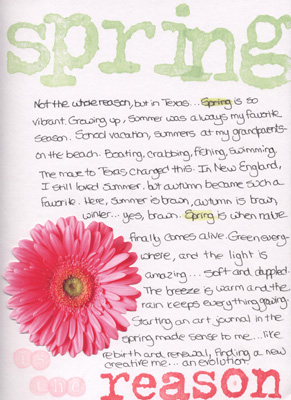 spring
Not the whole reason, but in Texas... Spring is so
vibrant. Growing up, summer was always my favorite
season. School vacation, summers at my grandparents
on the beach. Boating, crabbing, fishing, swimming.
The move to Texas changed this. In New England,
I still loved summer. but autumn became such a
favorite. Here, summer is brown, autumn is brown,
winter... yes, brown. Spring is when native
finally comes alive. Green every-
where, and the light is
amazing... soft and dappled.
The breeze is warm and the
rain keeps everything growing.
Starting an art journal in the
spring made sense to me... like
rebirth and renewal, finding a new
creative me... an evolution.
is
the
reason